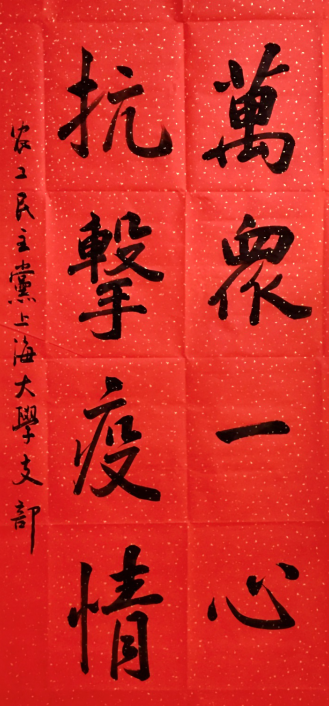 萬眾一心
抗擊疫情
农工民主黨上海大學支部